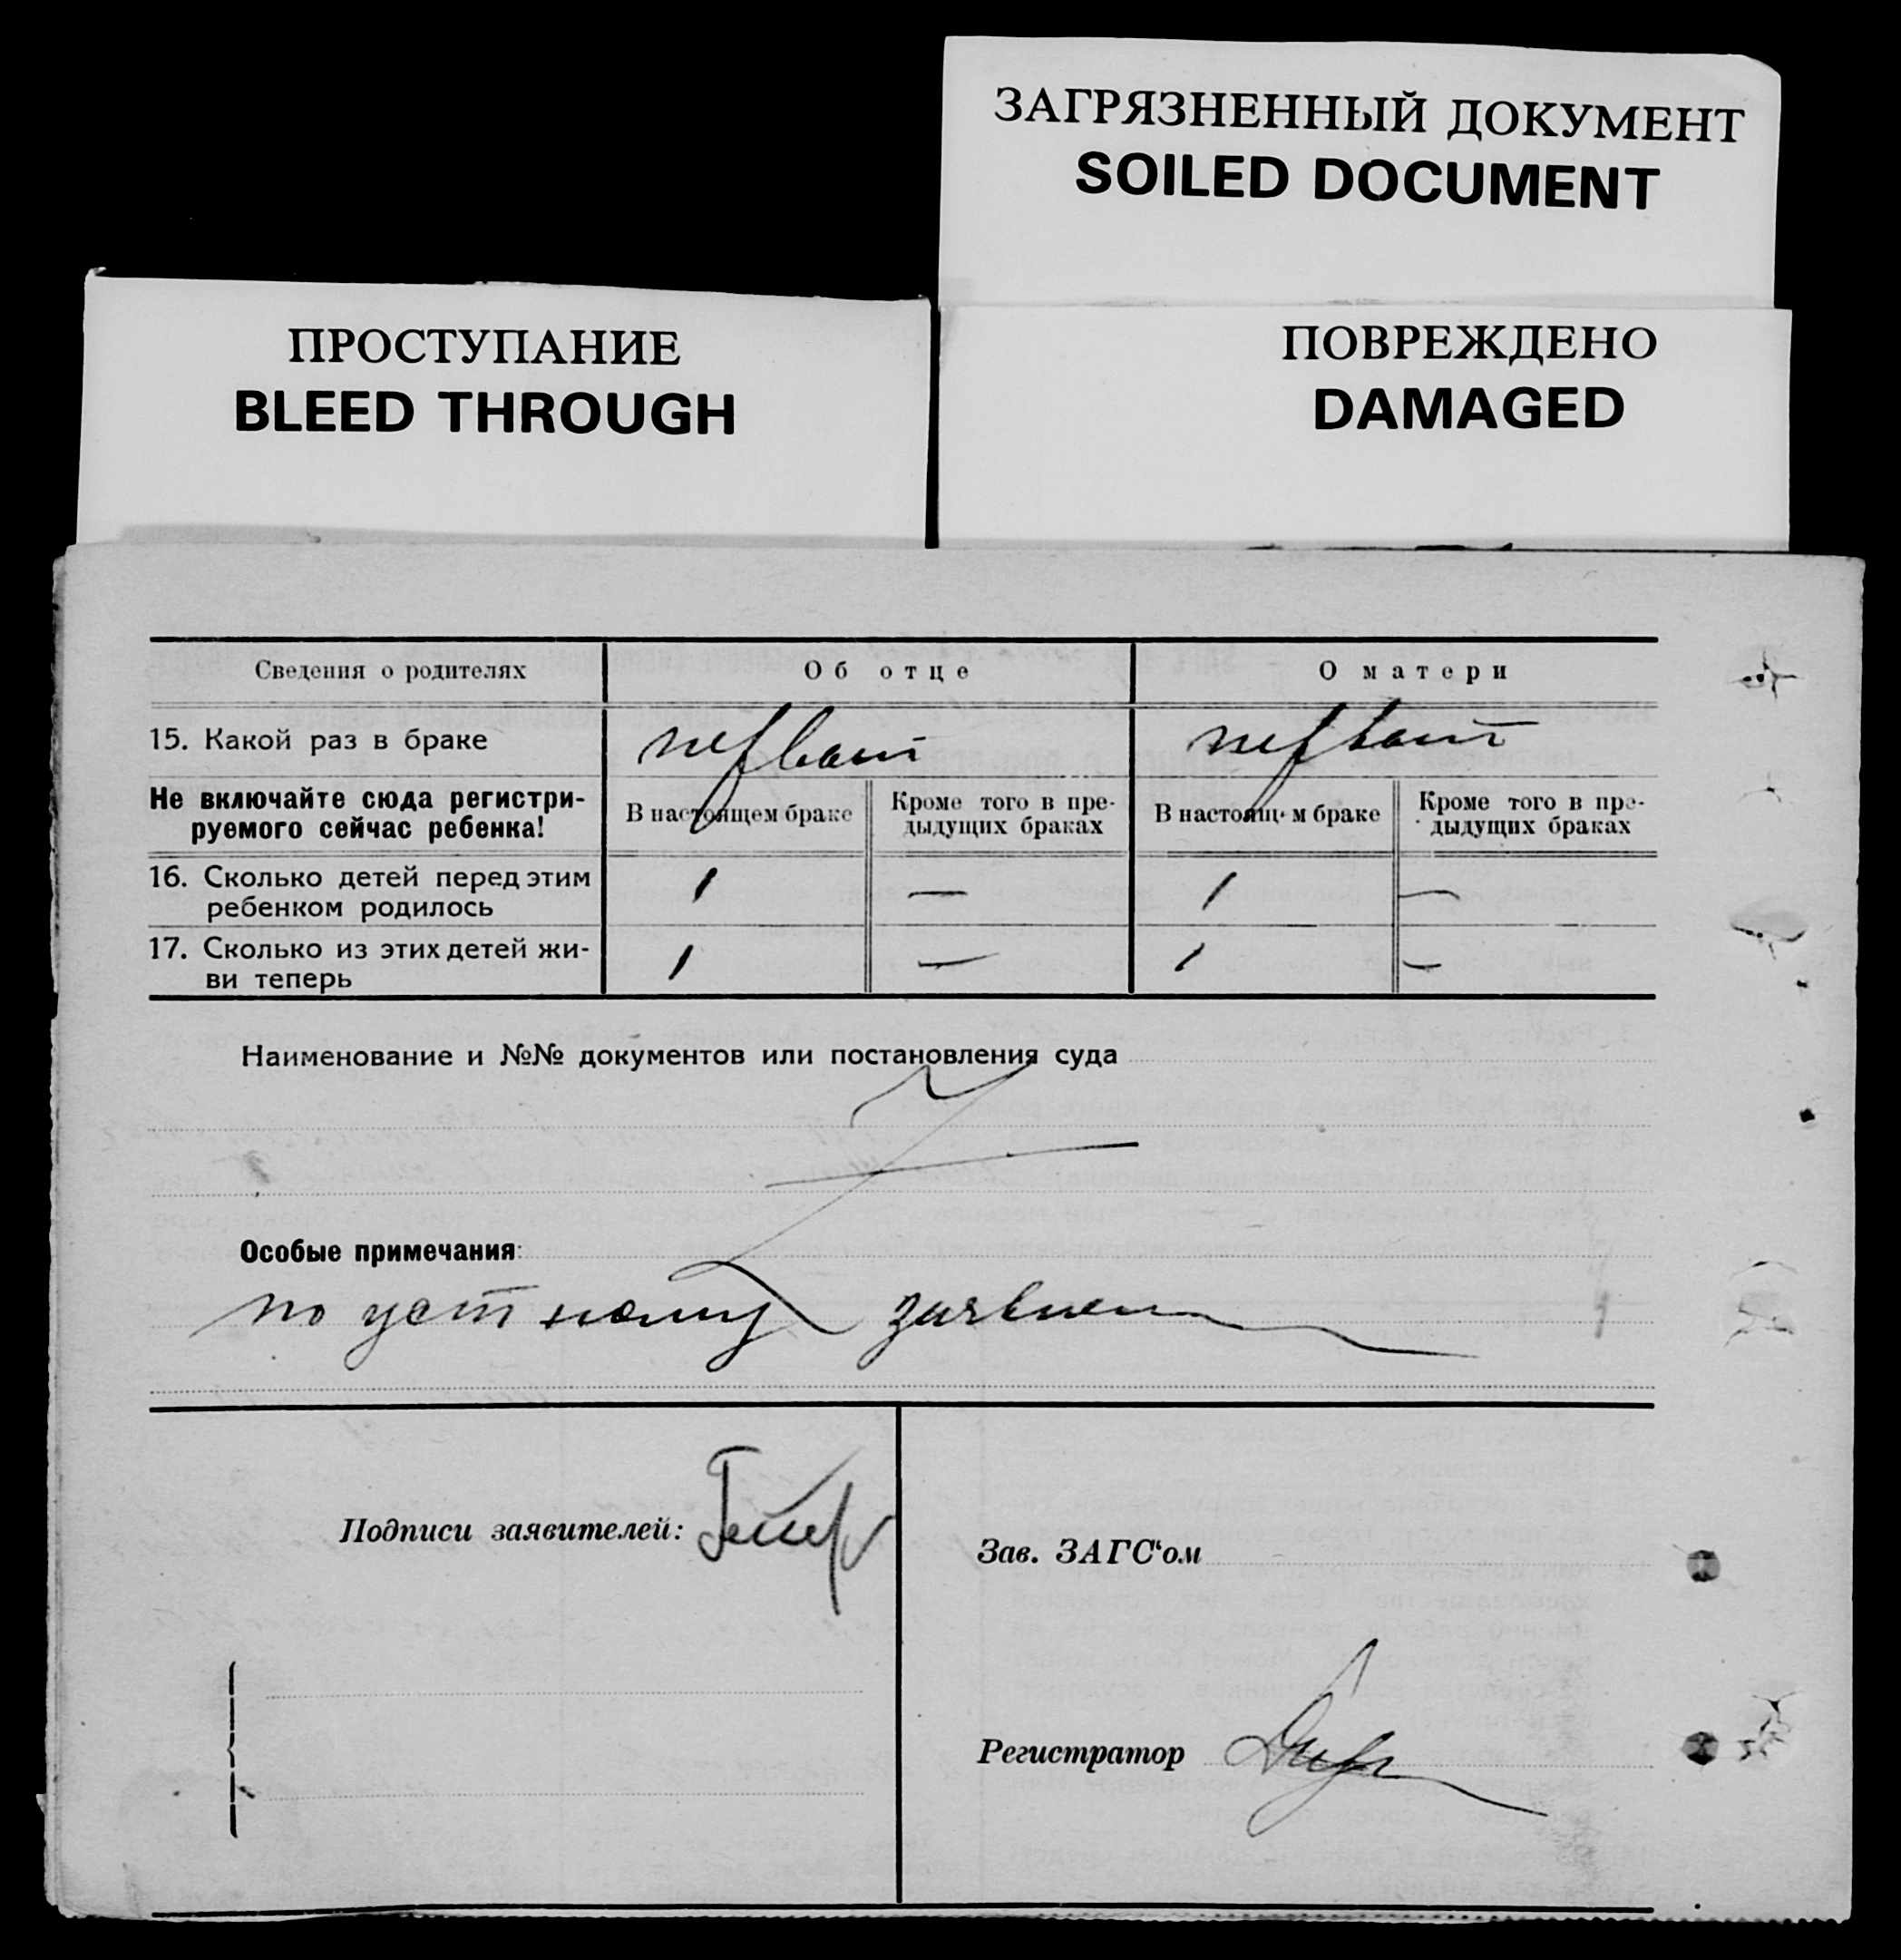 ЗАГРЯЗНЕННЫЙ ДОКУМЕНТ
SOILED DOCUMENT
ПРОСТУПАНИЕ
BLEED THROUGH
ПОВРЕЖДЕНО
DAMAGED
Сведения о родителях Об отце О матери
15. Какой раз в браке первый первый
Не включайте сюда регистри-
руемого сейчас ребенка!
В настоящем браке
Кроме того в пре-
дыдущих браках
В настоящем браке
Кроме того в пре-
дыдущих браках
16. Сколько детей перед этим
ребенком родилось 1 — 1 —
17. Сколько из этих детей жи-
ви теперь 1 — 1 —
Наименование и №№ документов или постановления суда
Особые примечания:
по устному заявлен
Подписи заявителей:
Зав. ЗАГС‘ом
Регистратор